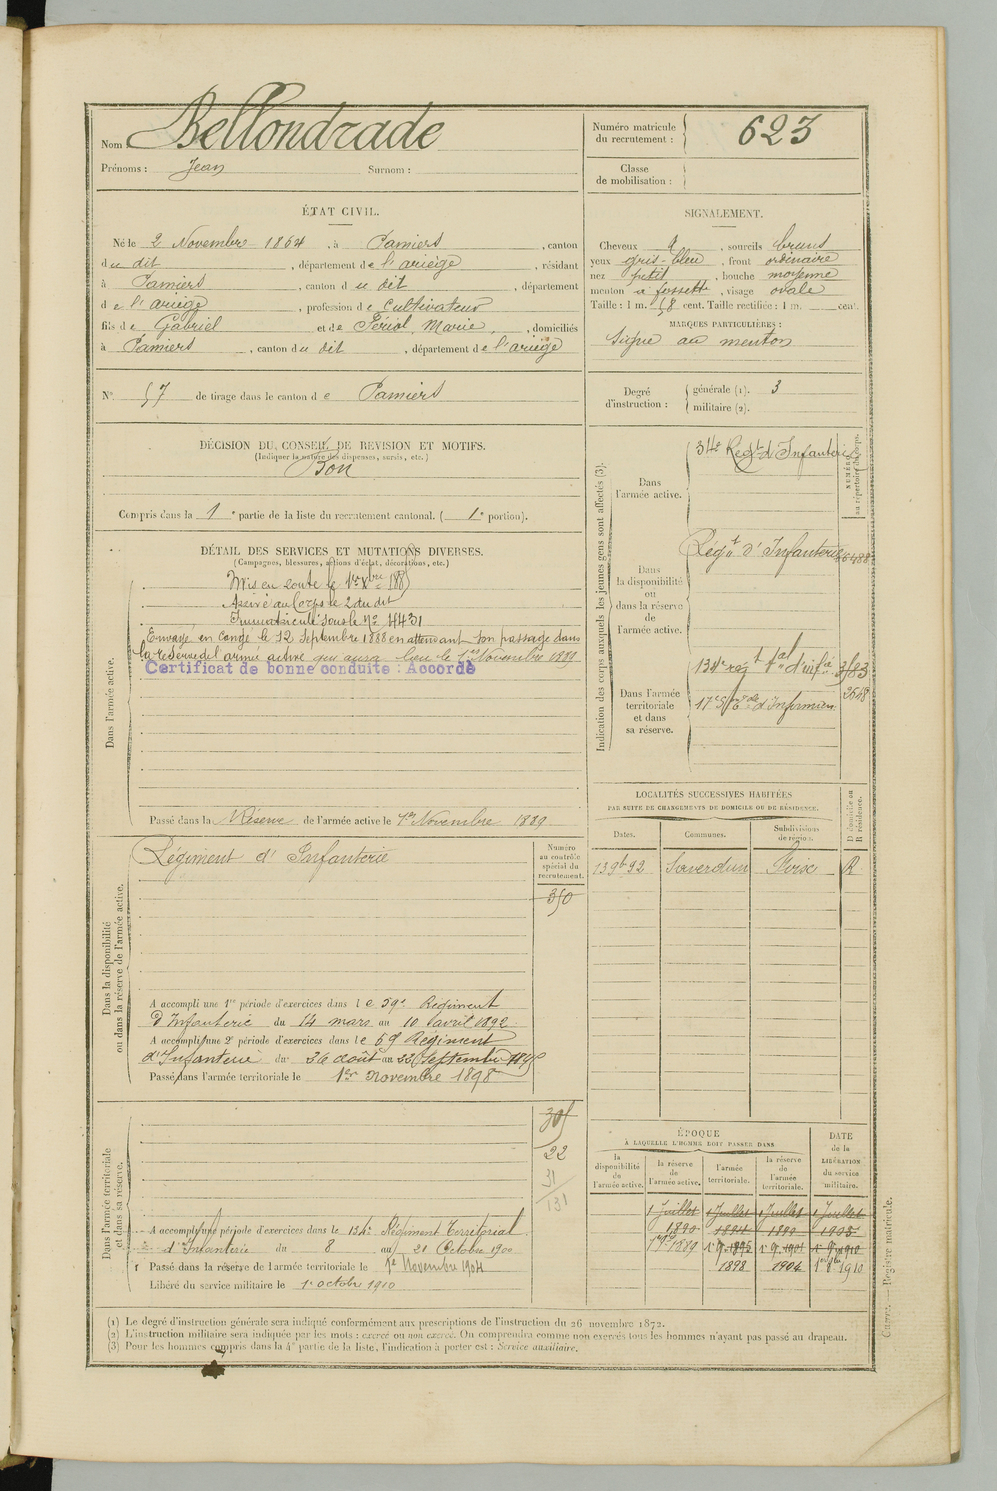 Nom : Bellondrade
Prénoms : Jean Surnom :
Numéro matricule du recrutement : 623
Classe de mobilisation :
ÉTAT CIVIL.
Né le 2 Novembre 1864, à Pamiers, canton
du dit, département de l'ariège, résidant
à Pamiers, canton du dit, département
de l'ariège, profession de Cultivateur
fils de Gabriel et de Périol, Marie, domiciliés
à Pamiers, canton du dit, département de l'ariège
N° 57 de tirage dans le canton de Pamiers
SIGNALEMENT.
Cheveux &, sourcils bruns
yeux gris-bleu, front ordinaire
nez petit, bouche moyenne
menton à fossette, visage ovale
Taille : 1 m. 58 cent. Taille rectifiée : 1 m. cent.
MARQUES PARTICULIÈRES :
Signe au menton
Degré d'instruction : générale (1). 3
militaire (2).
DÉCISION DU CONSEIL DE REVISION ET MOTIFS.
(Indiquer la nature des dispenses, sursis, etc.)
Bon
Compris dans la 1e partie de la liste du recrutement cantonal. (1e portion).
DÉTAIL DES SERVICES ET MUTATIONS DIVERSES.
(Campagnes, blessures, actions d'éclat, décorations, etc.)
Dans l'armée active.
Mis en route le 1er Xbre 1885
Arrivé au Corps le 2 du dit
Immatriculé sous le N° 4431
Envoyé en congé le 12 Septembre 1888 en attendant son passage dans
la réserve de l'armée active qui aura lieu le 1er Novembre 1889
Certificat de bonne conduite : Accordé
Passé dans la Réserve de l'armée active le 1er Novembre 1889
Indication des corps auxquels les jeunes gens sont affectés (3).
NUMÉRO au répertoire du corps.
Dans l'armée active.
34e Régt d'Infanterie
Dans la disponibilité ou dans la réserve de l'armée active.
Régt d'Infanterie
Dans l'armée territoriale et dans sa réserve.
134e régt tal d'infie 3583
17e Son tle d'Infirmiers
LOCALITÉS SUCCESSIVES HABITÉES
PAR SUITE DE CHANGEMENTS DE DOMICILE OU DE RÉSIDENCE.
Dates. Communes. Subdivisions de région. D domicile ou R résidence.
13 9b 92 Saverdun Foix R
Dans la disponibilité ou dans la réserve de l'armée active.
Régiment d'Infanterie
Numéro au contrôle spécial du recrutement.
350
A accompli une 1re période d'exercices dans le 59e Régiment
d'Infanterie du 14 mars au 10 avril 1892
A accompli une 2e période d'exercices dans le 59 Régiment
d'Infanterie du 26 août au 22 Septembre 1895
Passé dans l'armée territoriale le 1er Novembre 1898
Dans l'armée territoriale et dans sa réserve.
22
31
131
A accompli une période d'exercices dans le 134e Régiment Territorial
d'Infanterie du 8 au 21 Octobre 1900
Passé dans la réserve de l'armée territoriale le 1er Novembre 1904
Libéré du service militaire le 1er octobre 1910
ÉPOQUE
À LAQUELLE L'HOMME DOIT PASSER DANS
la disponibilité de l'armée active. la réserve de l'armée active. l'armée territoriale. la réserve de l'armée territoriale.
DATE de la LIBÉRATION du service militaire.
1 Juillet 1 Juillet 1 Juillet 1 Juillet
1890
1889
1898 1904 1910
Cadres. — Registre matricule.
(1) Le degré d'instruction générale sera indiqué conformément aux prescriptions de l'instruction du 26 novembre 1872.
(2) L'instruction militaire sera indiquée par les mots : exercé ou non exercé. On comprendra comme non exercés tous les hommes n'ayant pas passé au drapeau.
(3) Pour les hommes compris dans la 4e partie de la liste, l'indication à porter est : Service auxiliaire.